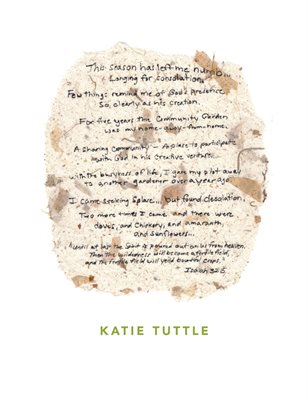 This season has left me numb...
Longing for consolation.
Few things remind me of God's presence
So clearly as his creation.
For five years the Community Garden
was my home-away-from-home.
A Sharing Community — A place to participate
with God in his creative venture.
With the busyness of life, I gave my plot away
to another gardener over a year ago.
I came seeking solace... but found desolation.
Two more times I came and there were
doves, and chickory, and amaranth,
and sunflowers...
"Until at last the Spirit is poured out on us from heaven.
Then the wilderness will become a fertile field,
and the fertile field will yield bountiful crops."
Isaiah 32:15
KATIE TUTTLE